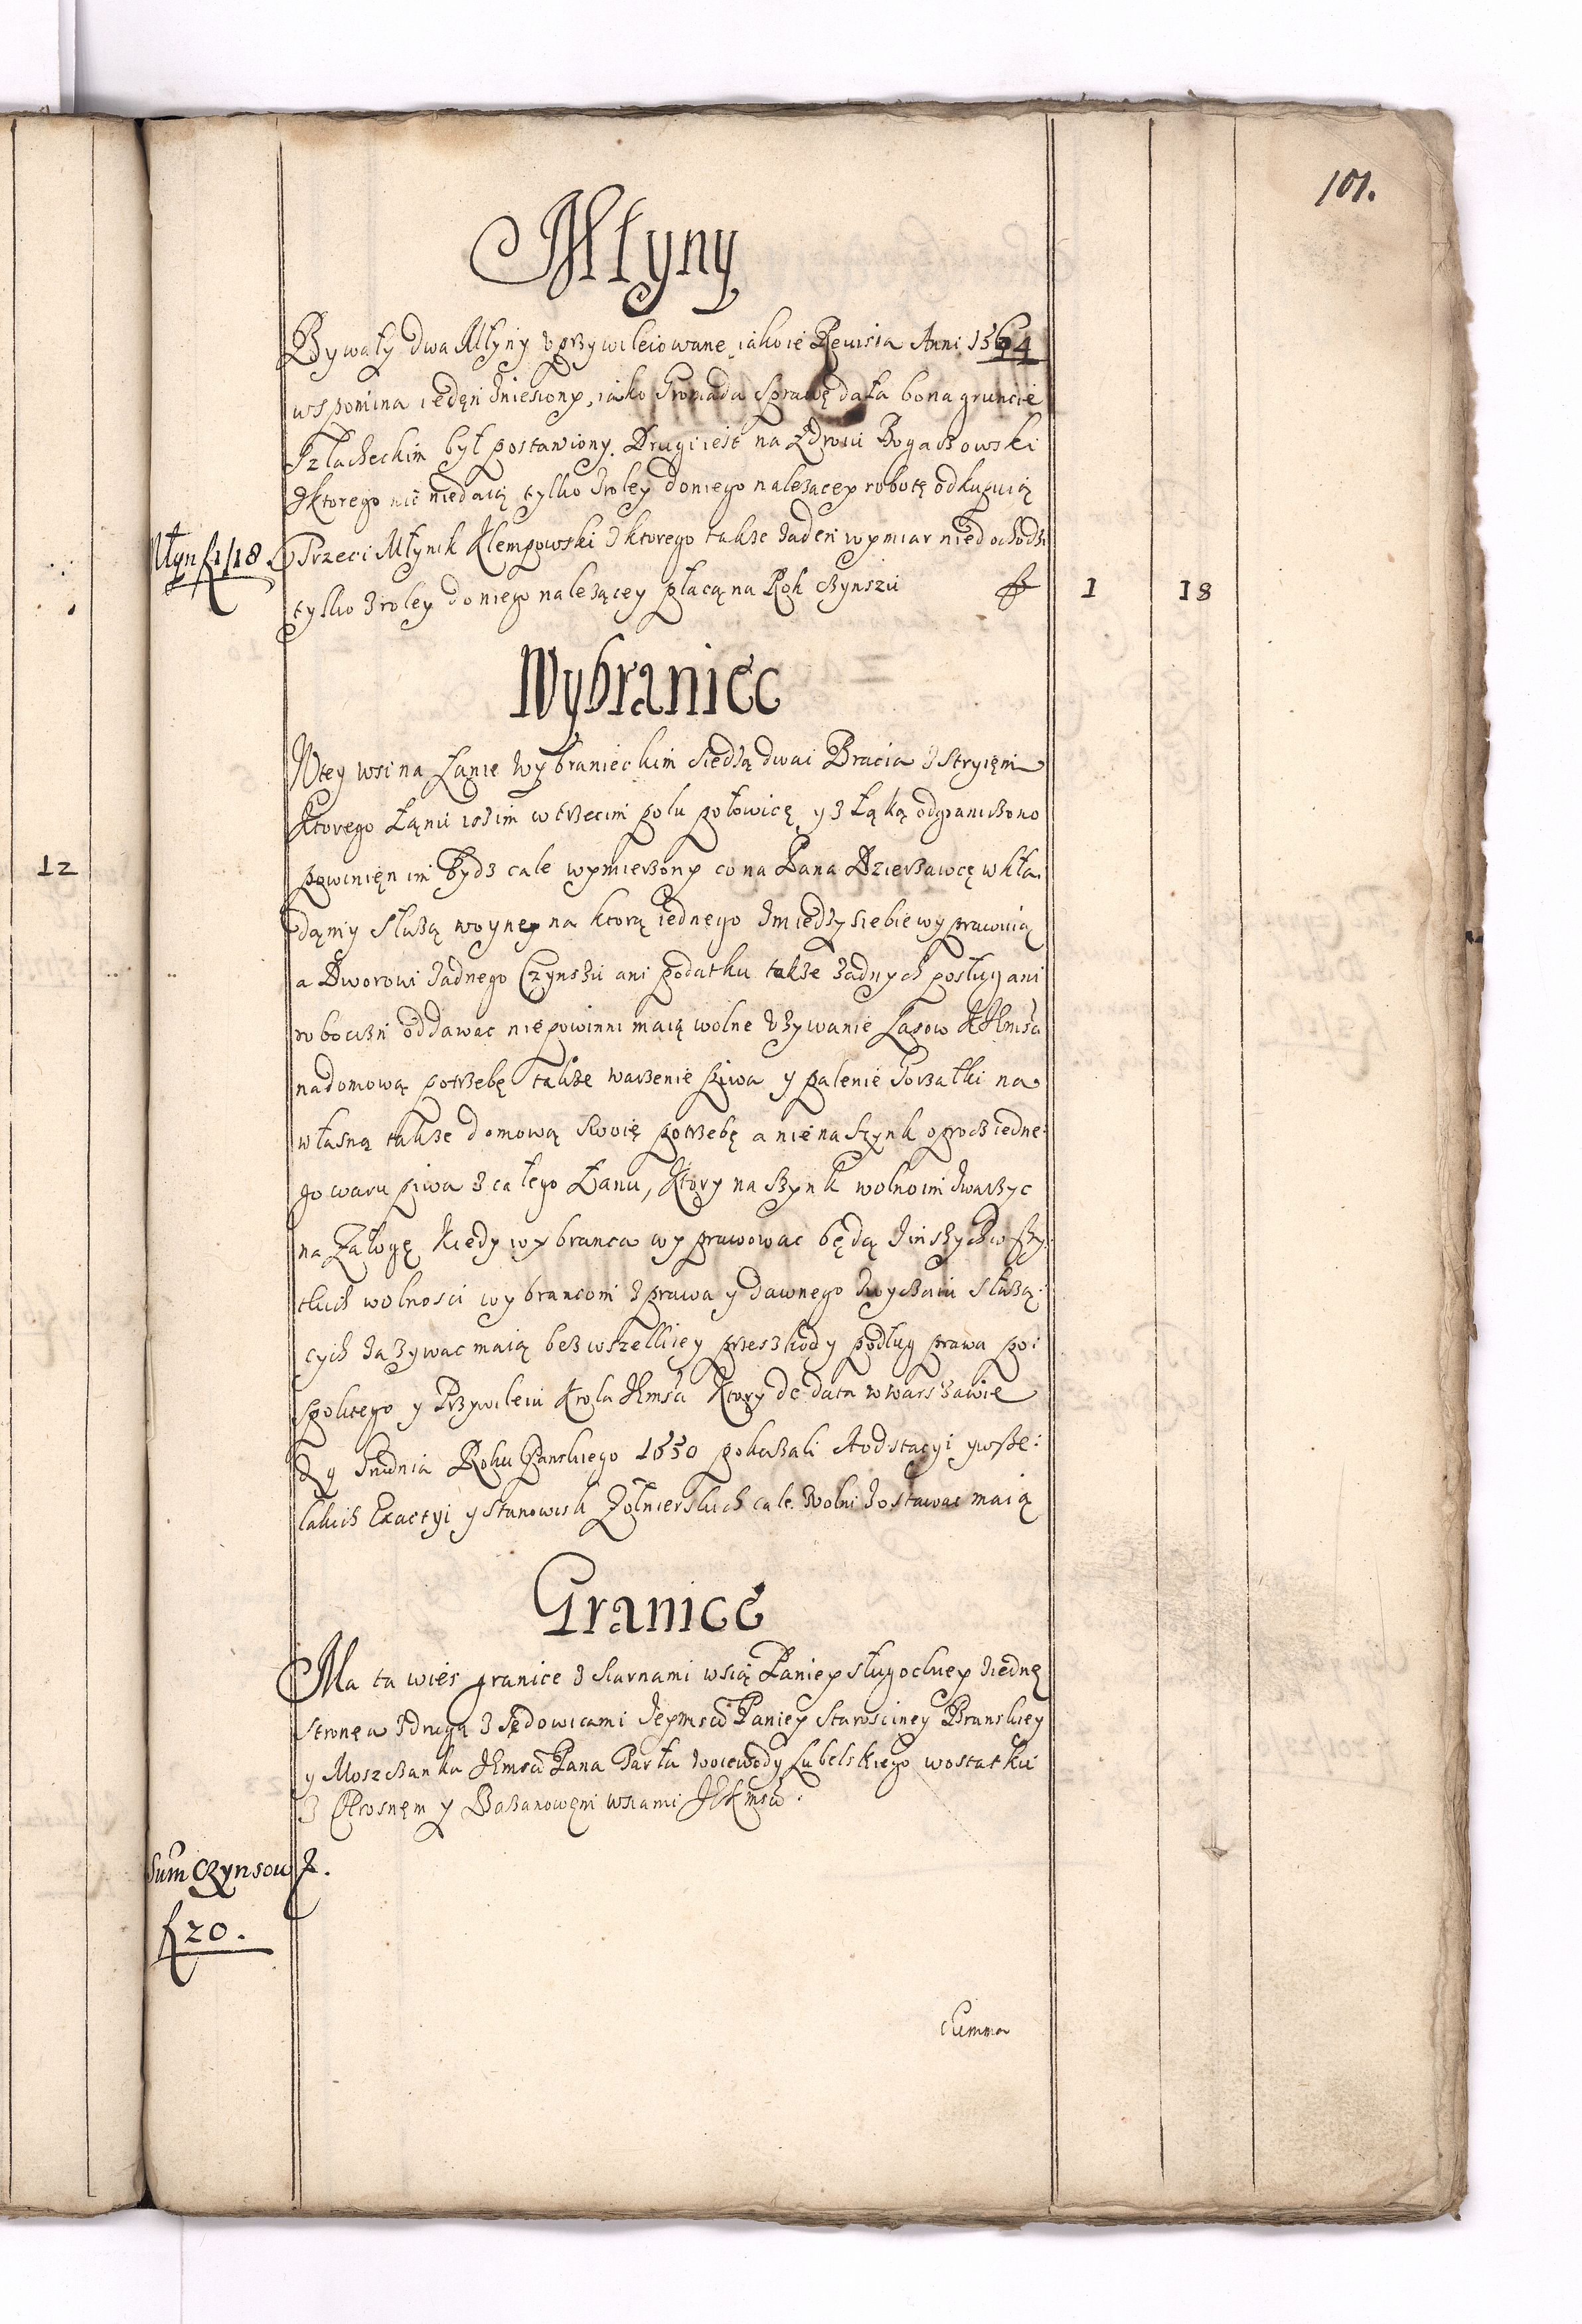 101.
Młyny
Bywały dwa Młyny uprzywileiowane iako ie Reuisia Anni 1564
wspomina ieden zniesiony, iako Gromada sprawę dała bo na gruncie
Szlacheckim był postawiony. Drugi iest na Zdroiu Bogaczowski
z ktorego nic niedaią tylko z roley do niego należącey robotę odkupuią
Młyn f1/18.
Trzeci Młynik Klempowski z ktorego także żaden wymiar niedochodzi
tylko z roley do niego należącey płacą na Rok czynszu f 1 18
Wybraniec
W tey wsi na Łanie Wybranieckim siedzą dwai Bracia z Stryięm
Ktorego Łanu iż im w trzecim polu połowicę y z Łąką odgraniczono
powinięn im bydz cale wymierzony co na Pana Dzierżawcę wkła:
damy Służą woynę na ktorą iednego z miedzy siebie wyprawuią
a Dworowi żadnego Czynszu ani podatku także żadnych posług ani
robocizn oddawac niepowinni maią wolne używanie Lasow JKMsci
na domową potrzebę także warzenie piwa y palenie Gorzałki na
własną także domową swoię potrzebę a nie na szynk oprocz iedne:
go waru piwa z całego Łanu, Ktory na szynk wolno im zwarzyc
na Załogę kiedy wybranca wyprawowac będą Zinszych wszy:
tkich wolnosci wybrancom z prawa y dawnego zwyczaiu służą:
cych zażywac maią bez wszelkiey przeszkody podług prawa po:
spolitego y Przywileiu Krola JKmsci Ktory de data w Warszawie
D 9 Grudnia Roku Pańskiego 1650 pokazali Astodstacyi y wsze:
lakich Exactyi y Stanowisk Żołnierskich cale wolni zostawac maią
Granice
Ma ta wies granice z Sarnami wsią Paniey Sługockiey z iednę
stronę a z drugą z Sędowicami Jeymsci Paniey Starosciney Branskiey
y Moszczanka JKmsci Pana Parła Woiewody Lubelskiego w ostatku
z Krosnęm y Bazanowęm wsiami JKmsci.
Sum Czynsow Z.
f 20.
Summa
12